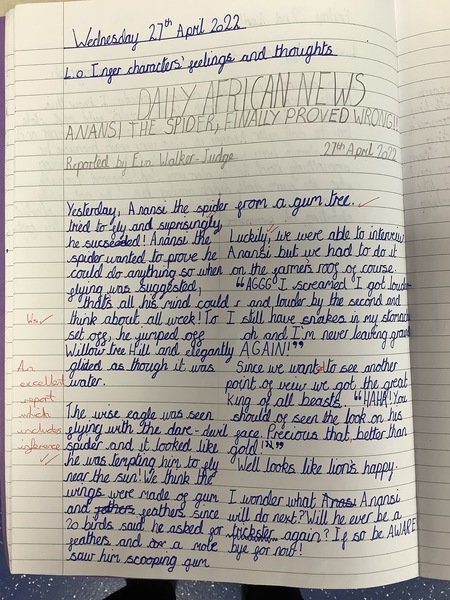 Wednesday 27th April 2022
L.o. Infer characters' feelings and thoughts
DAILY AFRICAN NEWS
ANANSI THE SPIDER, FINALLY PROVED WRONG!!
Reported by Eva Walker-Judge
27th April 2022
Yesterday, Anansi the spider
tried to fly and suprisingly,
he succeeded! Anansi the
spider wanted to prove he
could do anything so when
flying was suggested,
thats all his mind could
think about all week! To
set off, he jumped off
Willow tree Hill and elegantly
glided as though it was
water.
The wise eagle was seen
flying with the dare-devil
spider and it looked like
he was tempting him to fly
near the sun! We think the
wings were made of gum
and feathers since
20 birds said he asked for
feathers and a mole
saw him scooping gum
from a gum tree.
Luckily, we were able to interview
Anansi but we had to do it
on the farmer's roof of course.
"AGGG I screamed I got loude-
r and louder by the second and
I still have snakes in my stomach
oh and I'm never leaving ground
AGAIN!"
Since we wanted to see another
point of veiw we got the great
King of all beasts. "HAHA! You
should of seen the look on his
face. Precious that, better than
gold!"
Well looks like lion's happy.
I wonder what Anansi
will do next? Will he ever be a
trickster again? If so be AWARE
bye for now!
An
excellent
report
which
includes
inference